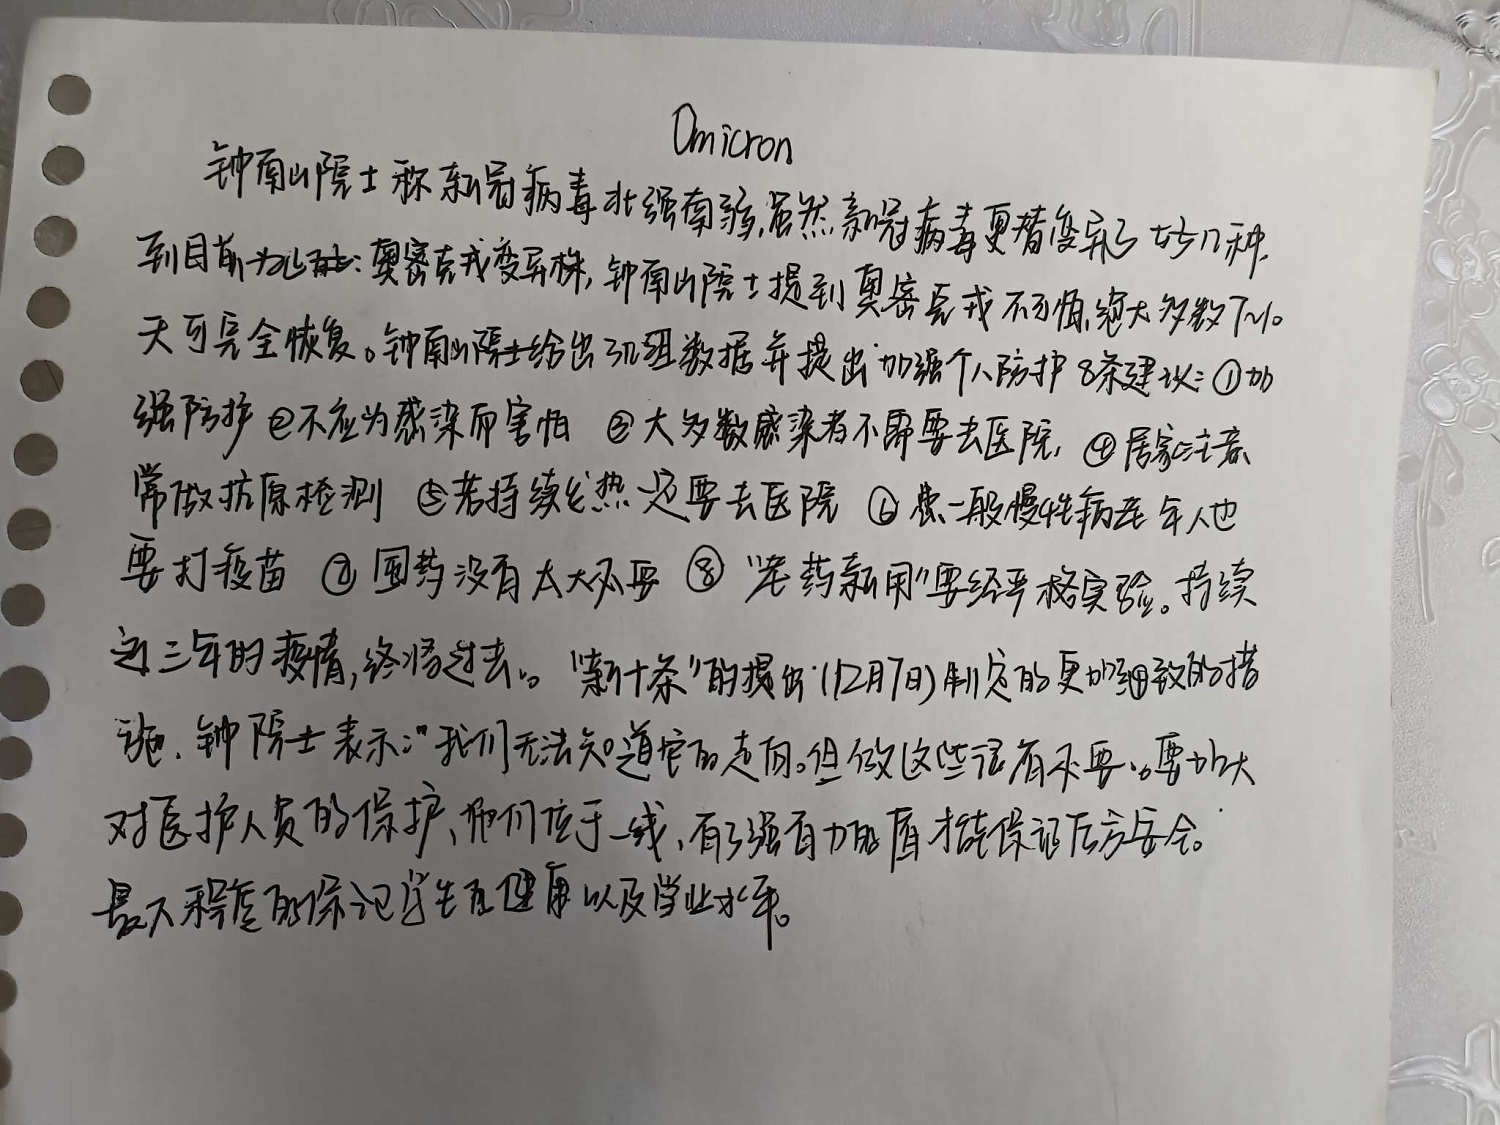 Omicron
钟南山院士称新冠病毒北强南弱,虽然新冠病毒更替变异了好几种,
到目前为止有:奥密克戎变异株,钟南山院士提到奥密克戎不可怕,绝大多数7~10
天可完全恢复。钟南山院士给出3组数据并提出加强个人防护8条建议:①加
强防护 ②不应为感染而害怕 ③大多数感染者不需要去医院, ④居家注意
常做抗原检测 ⑤若持续发热一定要去医院 ⑥患一般慢性病老年人也
要打疫苗 ⑦囤药没有太大必要 ⑧“老药新用”要经严格实验。持续
近三年的疫情,终将过去。“新十条”的提出(12月7日)制定的更加细致的措
施、钟院士表示:“我们无法知道它的走向。但做这些很有必要。要加大
对医护人员的保护、他们位于一线、有了强有力的盾才能保证后方安全。
最大程度的保证学生的健康以及学业水平。